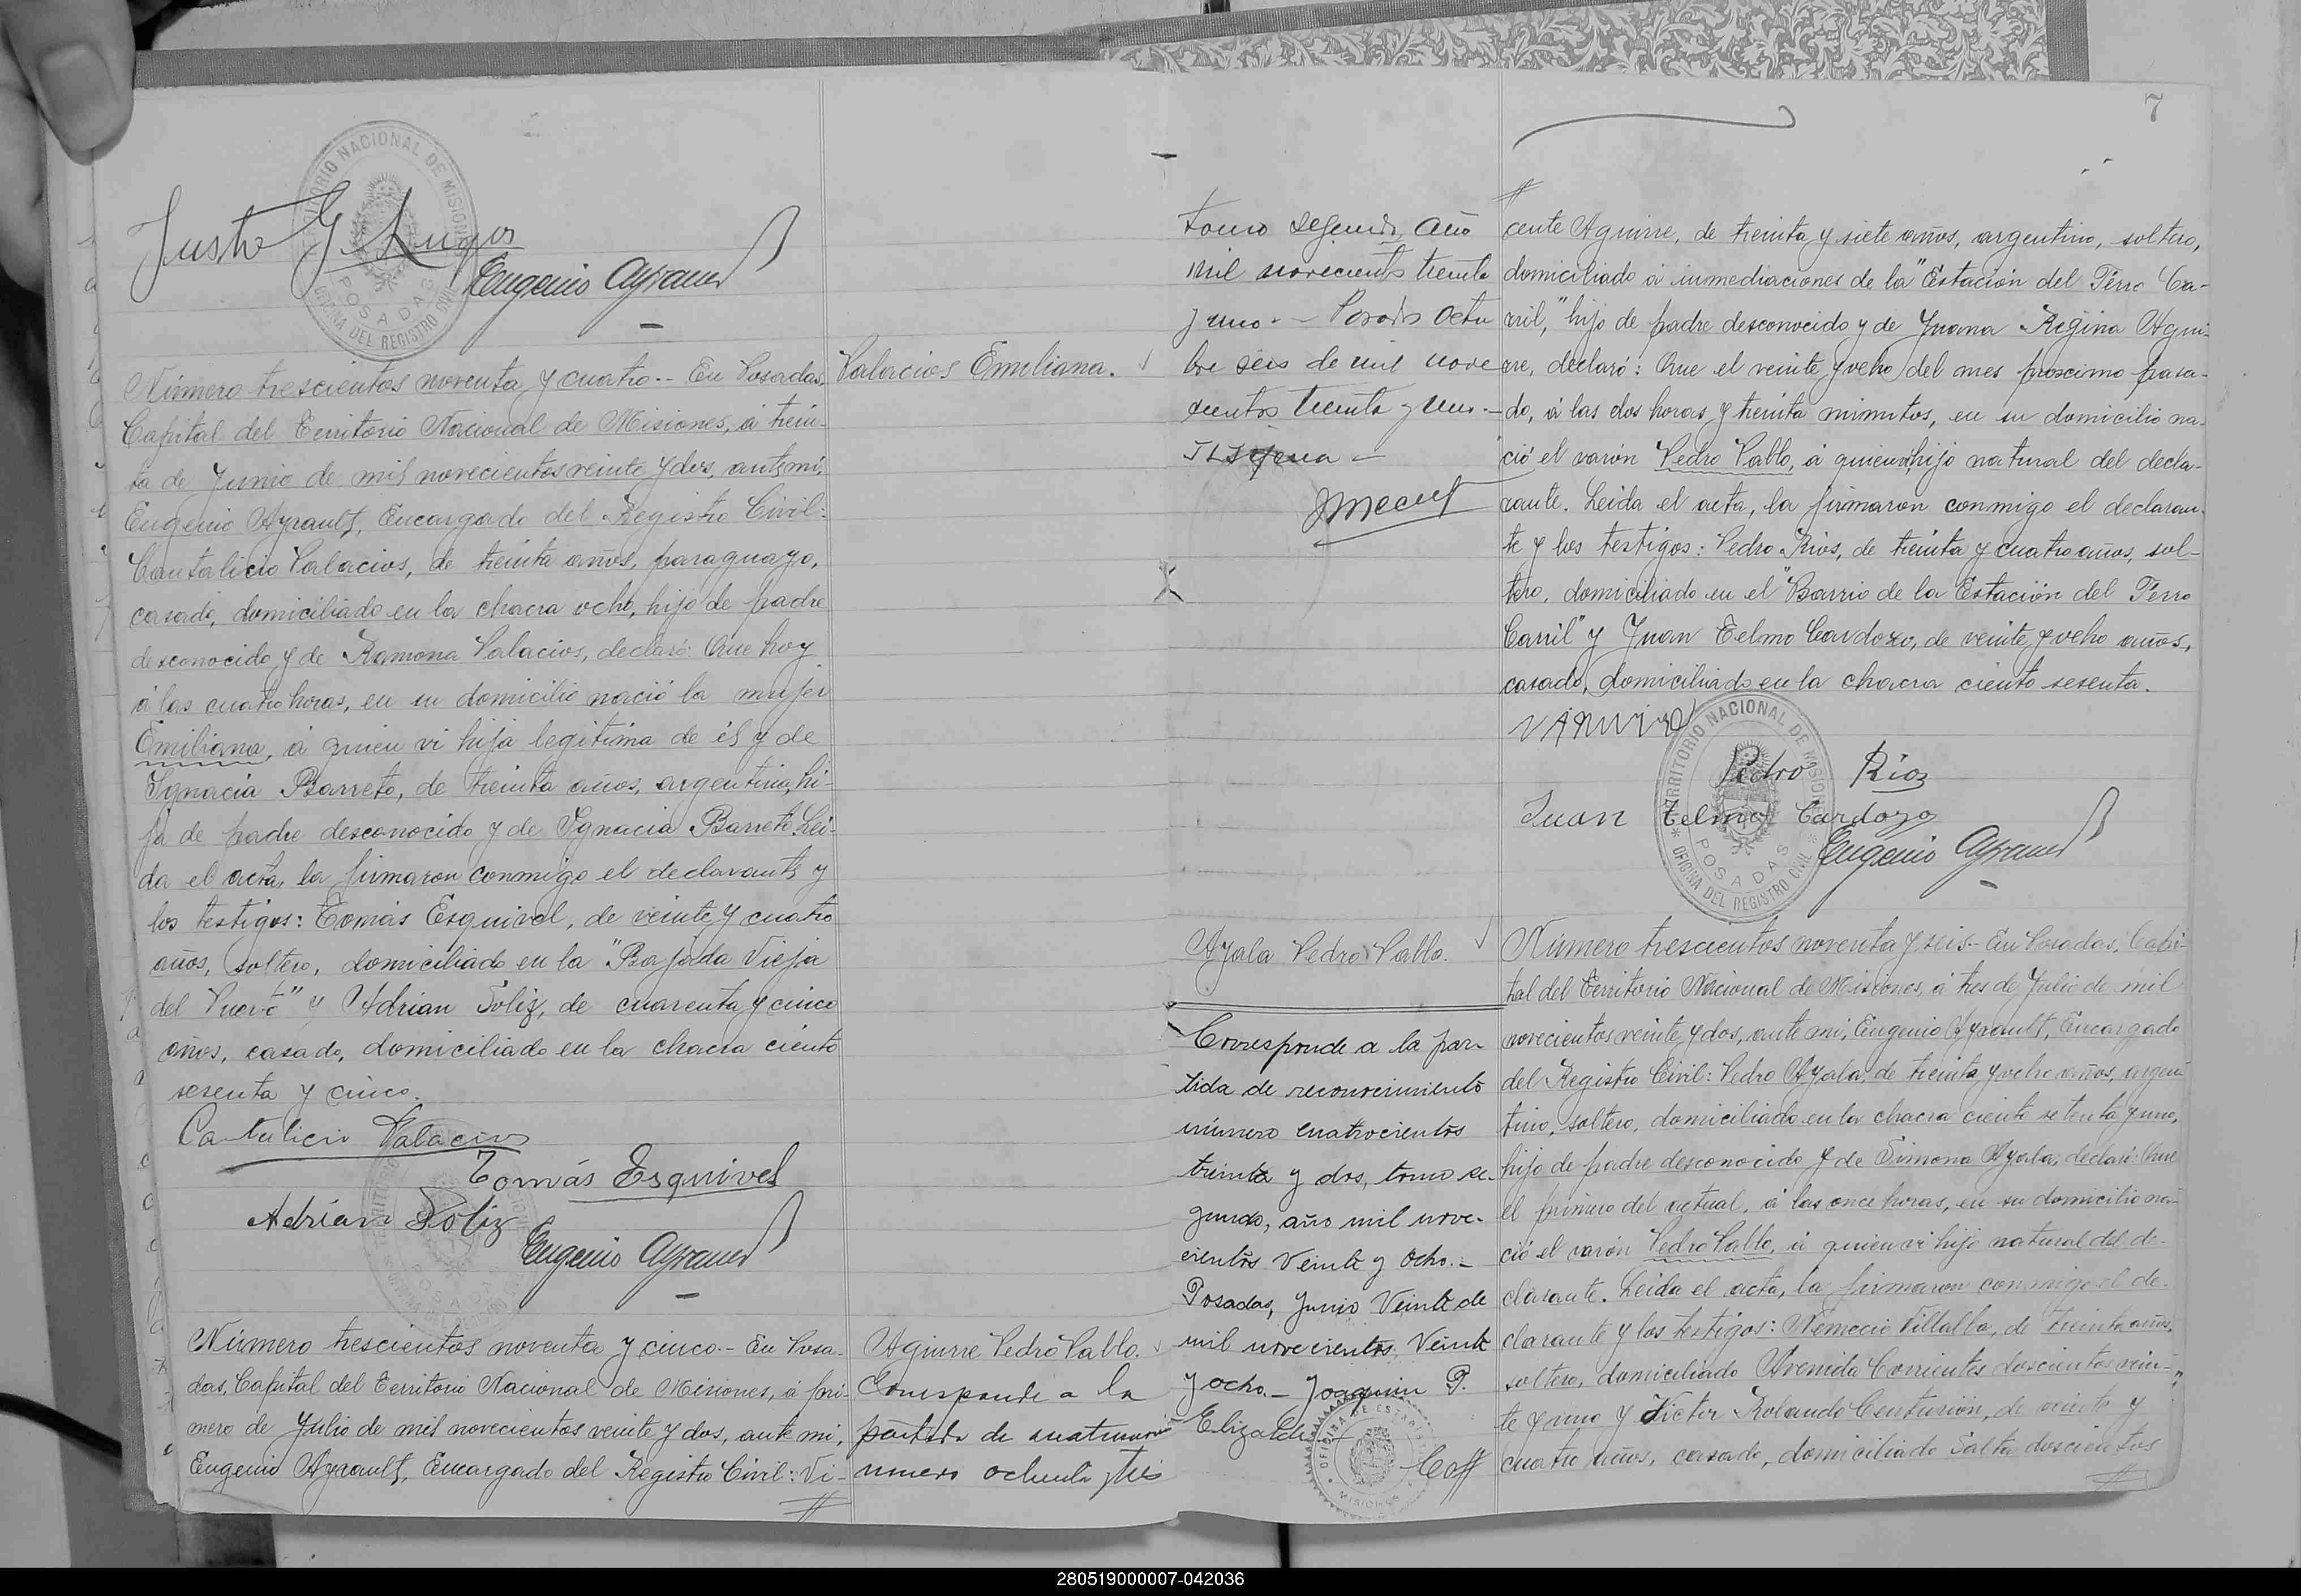 Justo G. Lugos
Eugenio Ayrault
TERRITORIO NACIONAL DE MISIONES
POSADAS
OFICINA DEL REGISTRO CIVIL
Número trescientos noventa y cuatro.- En Posadas,
Capital del Territorio Nacional de Misiones, á trein-
ta de Junio de mil novecientos veinte y dos, ante mi,
Eugenio Ayrault, Encargado del Registro Civil:
Cantalicio Palacios, de treinta años, paraguayo,
casado, domiciliado en la chacra ocho, hijo de padre
desconocido y de Ramona Palacios, declaró: Que hoy
á las cuatro horas, en su domicilio nació la mujer
Emiliana, á quien vi hija legítima de él y de
Ignacia Barreto, de treinta años, argentina, hi-
ja de padre desconocido y de Ignacia Barreto. Lei-
da el acta, la firmaron conmigo el declarante y
los testigos: Tomás Esquivel, de veinte y cuatro
años, soltero, domiciliado en la "Bajada Vieja
del Puerto" y Adrian Soliz, de cuarenta y cinco
años, casado, domiciliado en la chacra ciento
sesenta y cinco.
Cantalicio Palacios
Tomás Esquivel
Adrián Soliz
Eugenio Ayrault
Número trescientos noventa y cinco.- En Posa-
das, Capital del Territorio Nacional de Misiones, á pri-
mero de Julio de mil novecientos veinte y dos, ante mi,
Eugenio Ayrault, Encargado del Registro Civil: Vi-
Palacios Emiliana.
Aguirre Pedro Pablo.
Corresponde a la
partida de matrimonio
numero ochenta y tres
7
tomo segundo, año
mil novecientos treinta
y uno.- Posadas Octu
bre seis de mil nove
cientos treinta y uno.-
cente Aguirre, de treinta y siete años, argentino, soltero,
domiciliado á inmediaciones de la "Estación del Ferro Ca-
rril," hijo de padre desconocido y de Juana Regina Agui-
rre, declaró: Que el veinte y ocho del mes proscimo pasa-
do, á las dos horas y treinta minutos, en su domicilio na-
ció el varón Pedro Pablo, á quien vi hijo natural del decla-
rante. Leida el acta, la firmaron conmigo el declaran-
te y los testigos: Pedro Rios, de treinta y cuatro años, sol-
tero, domiciliado en el "Barrio de la Estación del Ferro
Carril" y Juan Telmo Cardozo, de veinte y ocho años,
casado, domiciliado en la chacra ciento sesenta.
Pedro Ríos
Juan Telmo Cardozo
Eugenio Ayrault
TERRITORIO NACIONAL DE MISIONES
POSADAS
OFICINA DEL REGISTRO CIVIL
Ayala Pedro Pablo.
Corresponde a la par-
tida de reconocimiento
número cuatrocientos
treinta y dos, tomo se-
gundo, año mil nove-
cientos veinte y ocho.-
Posadas, Junio Veinte de
mil novecientos Veinte
y ocho.- Joaquin P.
Elizalde
Número trescientos noventa y seis.- En Posadas, Capi-
tal del Territorio Nacional de Misiones, á tres de Julio de mil
novecientos veinte y dos, ante mi, Eugenio Ayrault, Encargado
del Registro Civil: Pedro Ayala, de treinta y ocho años, argen
tino, soltero, domiciliado en la chacra ciento setenta y uno,
hijo de padre desconocido y de Simona Ayala, declaró: Que
el primero del actual, á las once horas, en su domicilio na-
ció el varón Pedro Pablo, á quien vi hijo natural del de-
clarante. Leida el acta, la firmaron conmigo el de-
clarante y los testigos: Nemecio Villalba, de treinta años,
soltero, domiciliado Avenida Corrientes doscientos vein-
te y uno y Victor Rolando Centurión, de veinte y
cuatro años, casado, domiciliado Salta doscientos
280519000007-042036